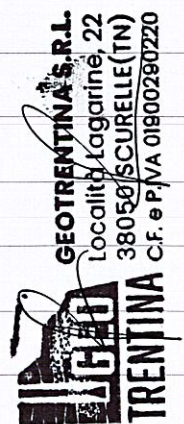 GEO
TRENTINA
GEOTRENTINA S.R.L.
Località Lagarine, 22
38050 SCURELLE (TN)
C.F. e P. IVA 01900290220